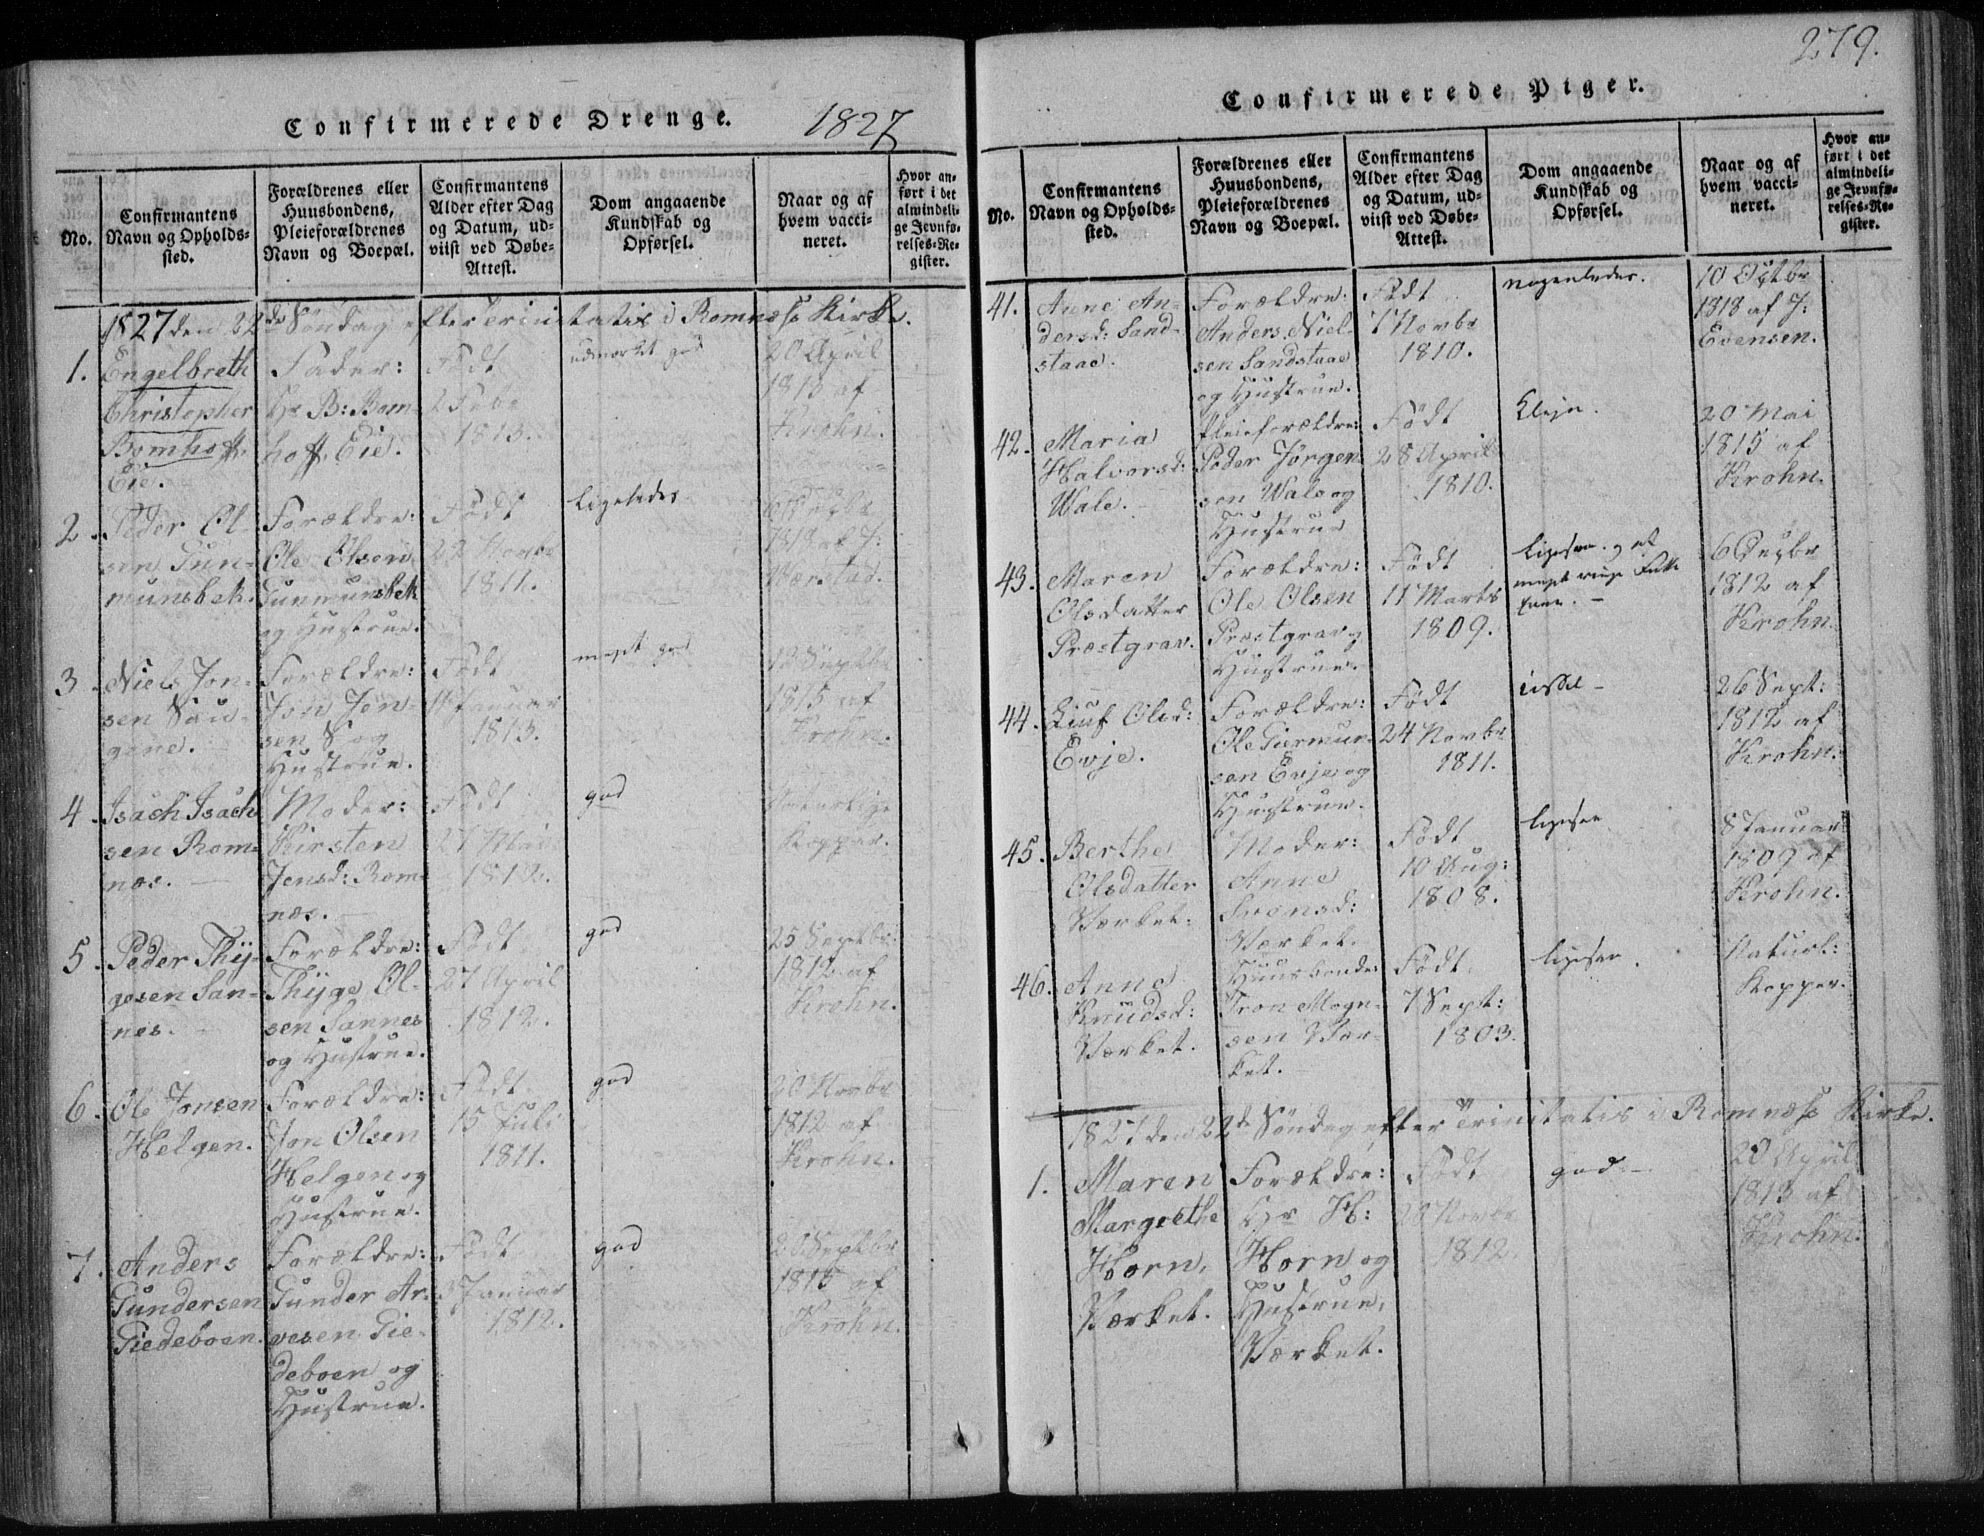 Confirmerede Drenge. 1827
No.
Confirmantens
Navn og Opholds-
sted.
Forældrenes eller
Huusbondens,
Pleieforældrenes
Navn og Boepæl.
Confirmantens
Alder efter Dag
og Datum, ud-
viist ved Døbe-
Attest.
Dom angaaende
Kundskab og
Opførsel.
Naar og af
hvem vacci-
neret.
Hvor an-
ført i det
almindeli-
ge Jevnfø-
relses-Re-
gister.
1827 den 22de Søndag efter Trinitatis i Romnæs Kirke.
1.
Engelbreth
Christopher
Bomhoff,
Eie.
Fader:
Hr B: Bom-
hoff, Eie.
Født
2 Febr
1813.
udmærket god
20 April
1813 af
Krohn.
2.
Peder Ol-
sen Gun-
munsbek.
Forældre:
Ole Olsen
Gunmunsbek
og Hustrue.
Født
22 Novbr
1811.
Ligeledes
1812 af J:
Værstad.
3.
Niels Jon-
sen Sau-
gene.
Forældre:
Jon Jen-
sen S og
Hustrue.
Født
Januar
1813.
meget god
12 Septbr
1815 af
Krohn.
4.
Isach Isach
sen Rom-
næs.
Moder:
Kirsten
Jensd: Rom-
næs.
Født
27 Mai
1812.
god
Naturlige
Kopper.
5.
Peder Thy-
gesen San-
nes.
Forældre:
Thyge Ol-
sen Sannes
og Hustrue.
Født
27 April
1812.
god
25 Septbr:
1812 af
Krohn.
6.
Ole Jonsen
Helgen.
Forældre:
Jon Olsen
Helgen og
Hustrue.
Født
15 Juli
1811.
god
20 Novbr
1812 af
Krohn.
7.
Anders
Gundersen
Giedeboen.
Forældre:
Gunder Ar-
vesen Gie-
deboen og
Hustrue.
Født
3 Januar
1812.
god
20 Septbr
1815 af
Krohn.
279.
Confirmerede Piger.
No.
Confirmantens
Navn og Opholds-
sted.
Forældrenes eller
Huusbondens,
Pleieforældrenes
Navn og Boepæl.
Confirmantens
Alder efter Dag
og Datum, ud-
viist ved Døbe-
Attest.
Dom angaaende
Kundskab og
Opførsel.
Naar og af
hvem vacci-
neret.
Hvor an-
ført i det
almindeli-
ge Jevnfø-
relses-Re-
gister.
41.
Anne An-
dersd: Sand-
staae.
Forældre:
Anders Niel-
sen Sandstaae
og Hustrue.
Født
7 Novbr
1810.
nogenledes.
10 Octbr
1818 af J:
Evensen.
42.
Maria
Halvorsd:
Wale.
Pleieforældre:
Peder Jørgen
sen Wale og
Hustrue
Født
28 April
1810.
20 Mai
1815 af
Krohn.
43.
Maren
Olsdatter
Præstgrav.
Forældre:
Ole Olsen
Præstgrav og
Hustrue.
Født
11 Marts
1809.
ligesaa og et
meget ringe
6 Decbr
1812 af
Krohn.
44.
Liuf Olsd:
Evje.
Forældre:
Ole Giermun-
sen Evje og
Hustrue.
Født
24 Novbr
1811.
26 Sept:
1812 af
Krohn.
45.
Berthe
Olsdatter
Værket.
Moder:
Anne
Svensd:
Værket.
Født
10 Aug:
1808.
ligesaa
8 Januar
1809 af
Krohn.
46.
Anne
Knudsd:
Værket.
Huusbonde
Tron Mogn-
sen Vær-
ket.
Født
7 Sept:
1803.
ligesaa.
Naturl:
Kopper.
1827 den 22de Søndag efter Trinitatis i Romnæs Kirke.
1.
Maren
Margrethe
Horn,
Værket.
Forældre:
Hr H:
Horn og
Hustrue,
Værket.
Født
28 Novbr
1812.
god
20 April
1813 af
Krohn.